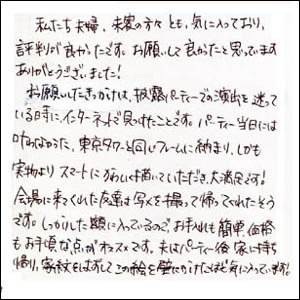 私たち夫婦、来客の方々とも、気に入っており、
評判が良かったです。お願いして良かったと思っています
ありがとうございました!
お願いしたきっかけは、披露パーティーでの演出を迷って
いる時に、インターネットで見つけたことです。パーティー当日には
叶わなかった、東京タワーと同じフレームに納まり、しかも
実物よりスマートにかわいく描いていただき、大満足です!
会場に来てくれた友達は写メを撮って帰ってくれたそう
です。しっかりした額に入っているので、お手入れも簡単、価格
もお手頃な点がオススメです。夫はパーティー後 家に持ち
帰り、家紋をはずしてこの絵を壁にかけたほど気に入っています!